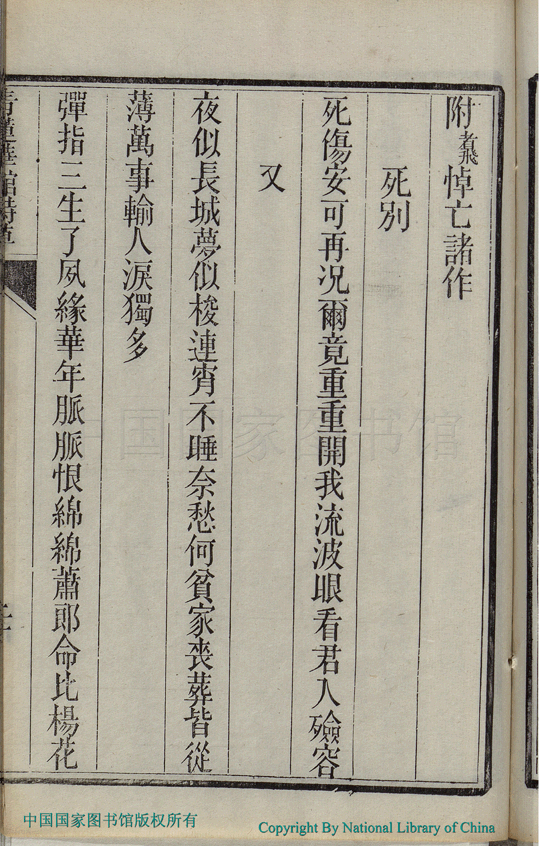 附翥悼亡諸作
死別
死傷安可再况爾竟重重開我流波眼看君入殮容
又
夜似長城夢似梭連宵不睡奈愁何貧家喪葬皆從
薄萬事輸人淚獨多
彈指三生了夙緣華年脈脈恨綿綿蕭郎命比楊花
中国国家图书馆
中国国家图书馆版权所有
Copyright By National Library of China